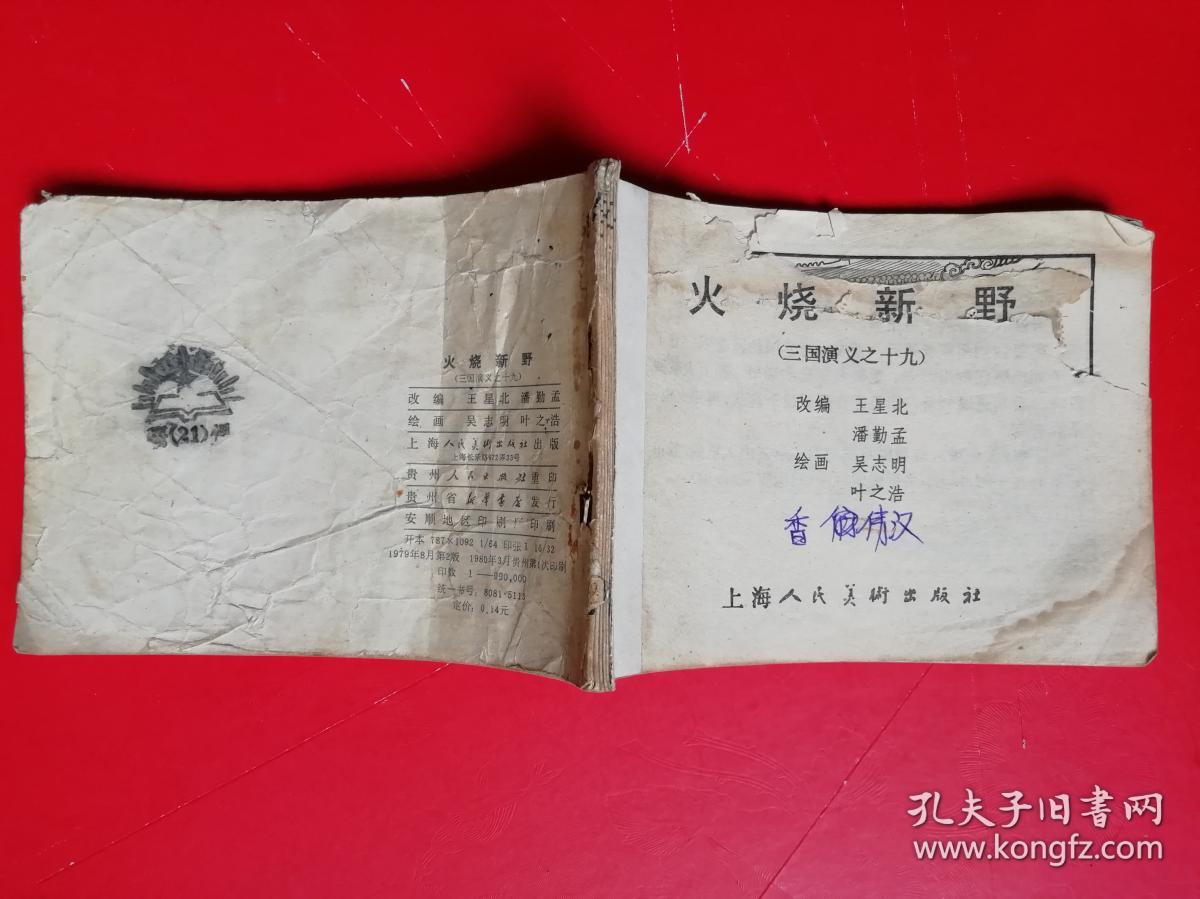 火烧新野
(三国演义之十九)
改编 王星北 潘勤孟
绘画 吴志明 叶之浩
上海人民美術出版社出版
上海长乐路672弄33号
贵州人民出版社重印
贵州省新华书店发行
安顺地区印刷厂印刷
开本 787×1092 1/64 印张1 16/32
1979年8月第2版 1980年3月贵州第1次印刷
印数 1—990,000
统一书号: 8081·5113
定价: 0.14元
(21)
火烧新野
(三国演义之十九)
改编 王星北
潘勤孟
绘画 吴志明
叶之浩
香
汉
上海人民美術出版社
孔夫子旧书网
www.kongfz.com